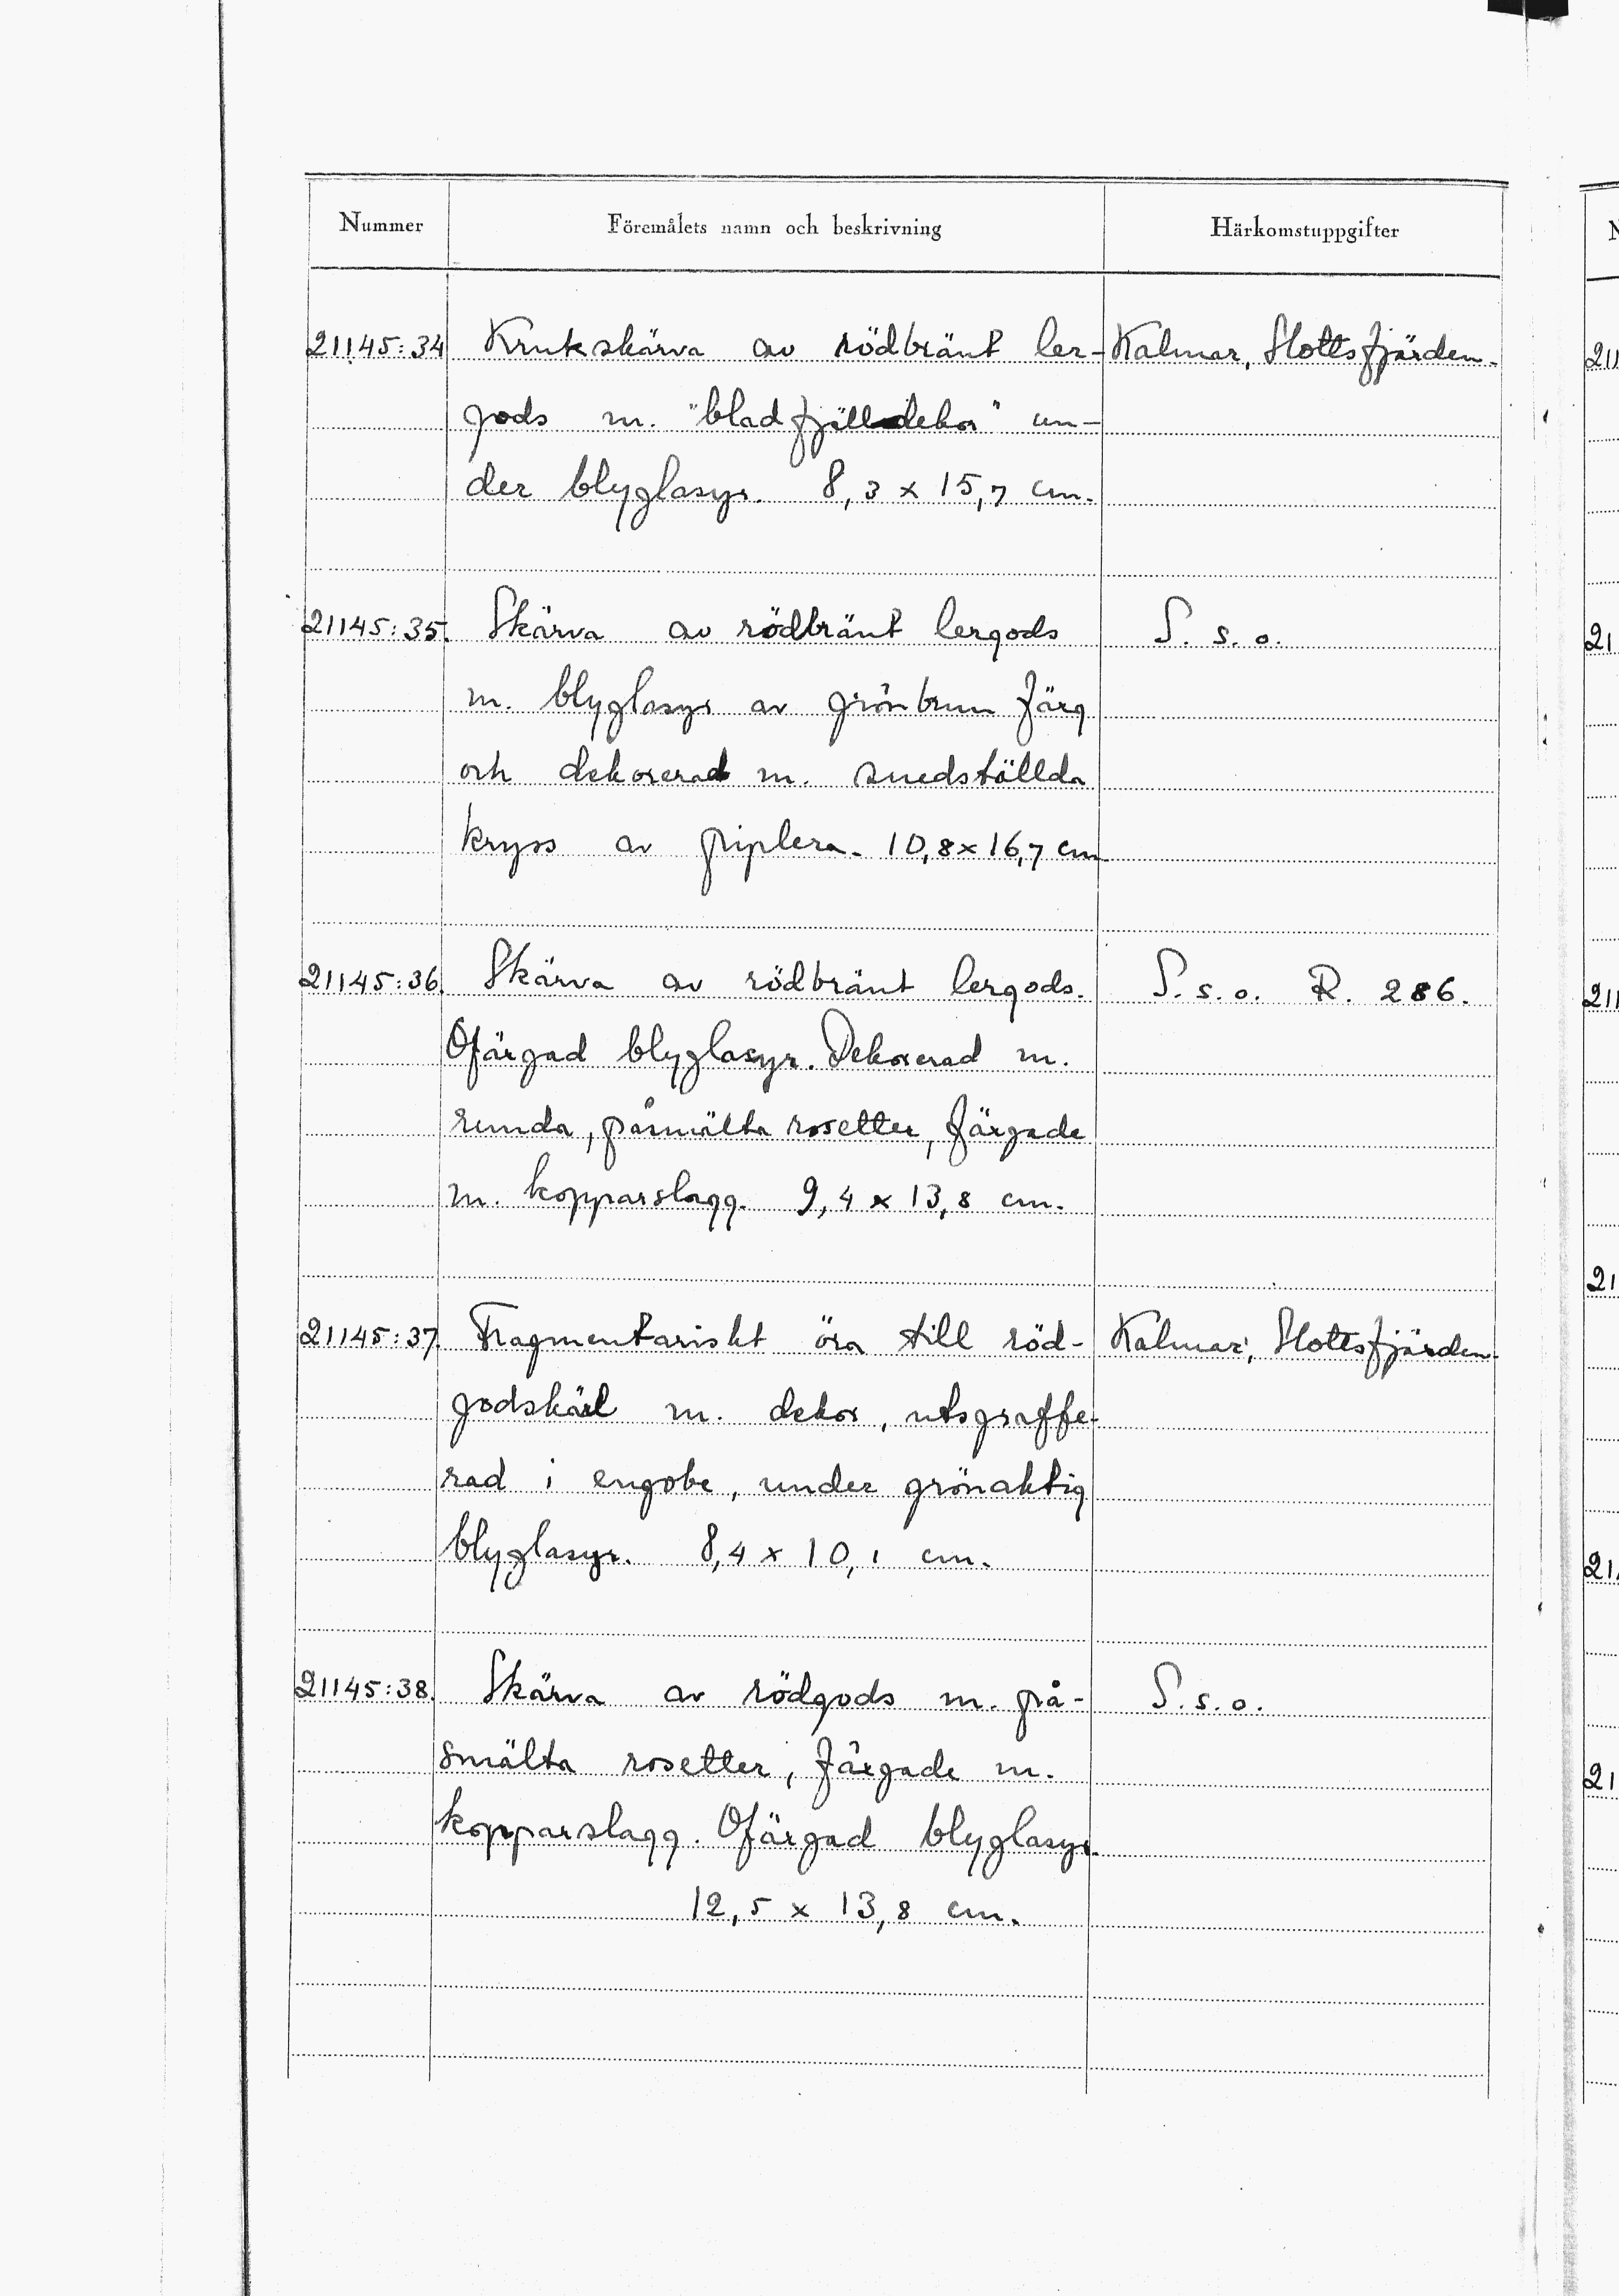 Nummer Föremålets namn och beskrivning Härkomstuppgifter
21145:34 Krukskärva av rödbränt ler- Kalmar, Slottsfjärden.
gods m. "bladfjälldekor" un-
der blyglasyr. 8,3 x 15,7 cm.
21145:35. Skärva av rödbränt lergods S. s. o.
m. blyglasyr av grönbrun färg
och dekorerad m. snedställda
kryss av piplera. 10,8 x 16,7 cm
21145:36. Skärva av rödbränt lergods. S. s. o. R. 286.
Ofärgad blyglasyr. Dekorerad m.
runda, påsmälta rosetter, färgade
m. kopparslagg. 9,4 x 13,8 cm.
21145:37. Fragmentariskt öra till röd- Kalmar, Slottsfjärden.
godskärl m. dekor, utsgraffe-
rad i engobe, under grönaktig
blyglasyr. 8,4 x 10,1 cm.
21145:38. Skärva av rödgods m. på- S. s. o.
smälta rosetter, färgade m.
kopparslagg. Ofärgad blyglasyr.
12,5 x 13,8 cm.